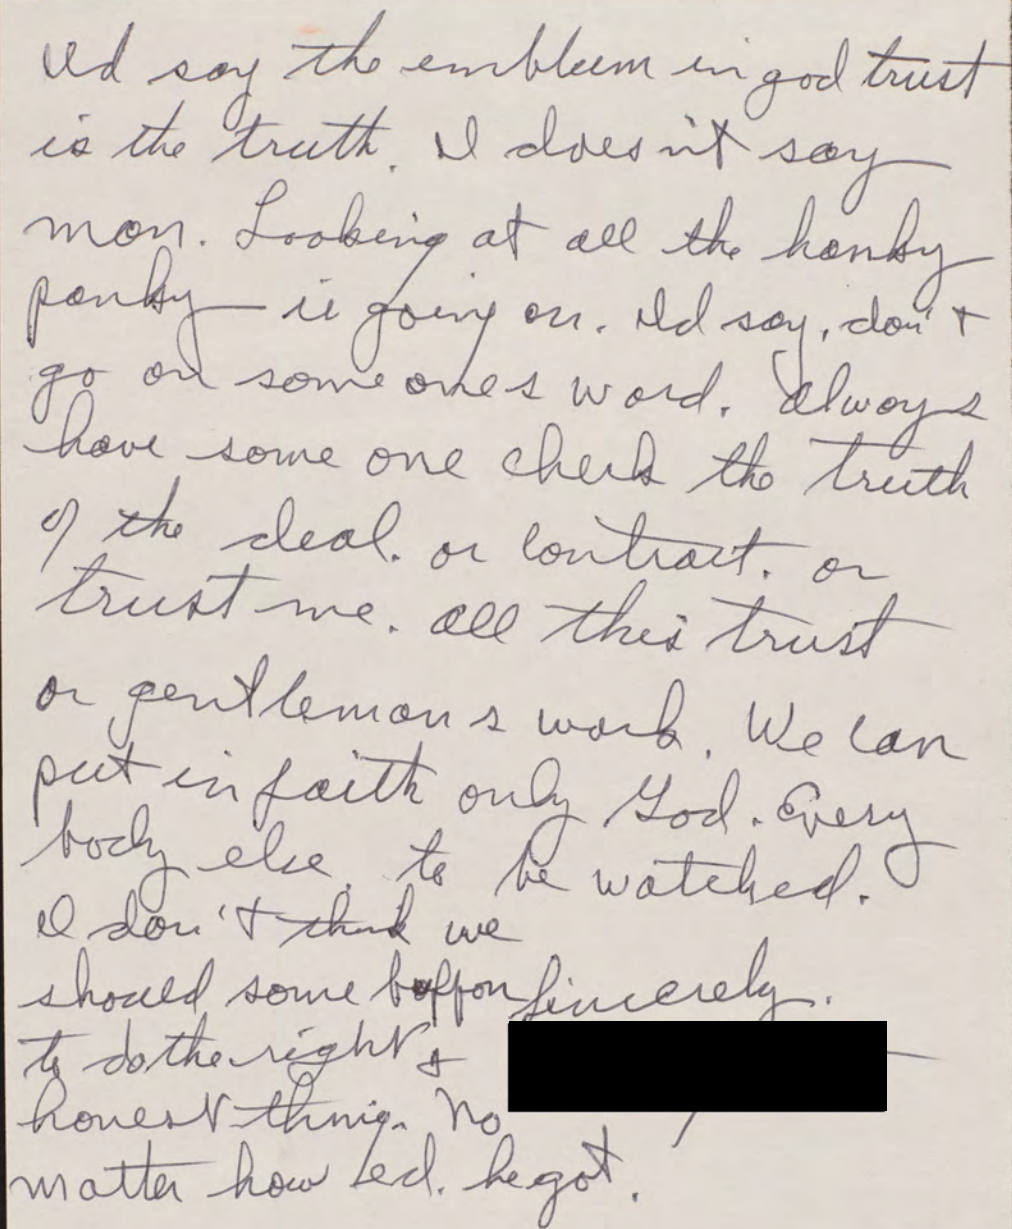 I'd say the embleem in god trust
is the truth. I doesn't say
man. Looking at all the hanky
panky is going on. I'd say, don't
go on some ones word. Always
have some one check the truth
of the deal. or contract. or
trust me. all this trust
or gentlemans work. We can
put in faith only God. Every
body else. to be watched.
I don't think we
should some buffon Sincerely.
to do the right &
honest thing. No
matter how ed. he got.